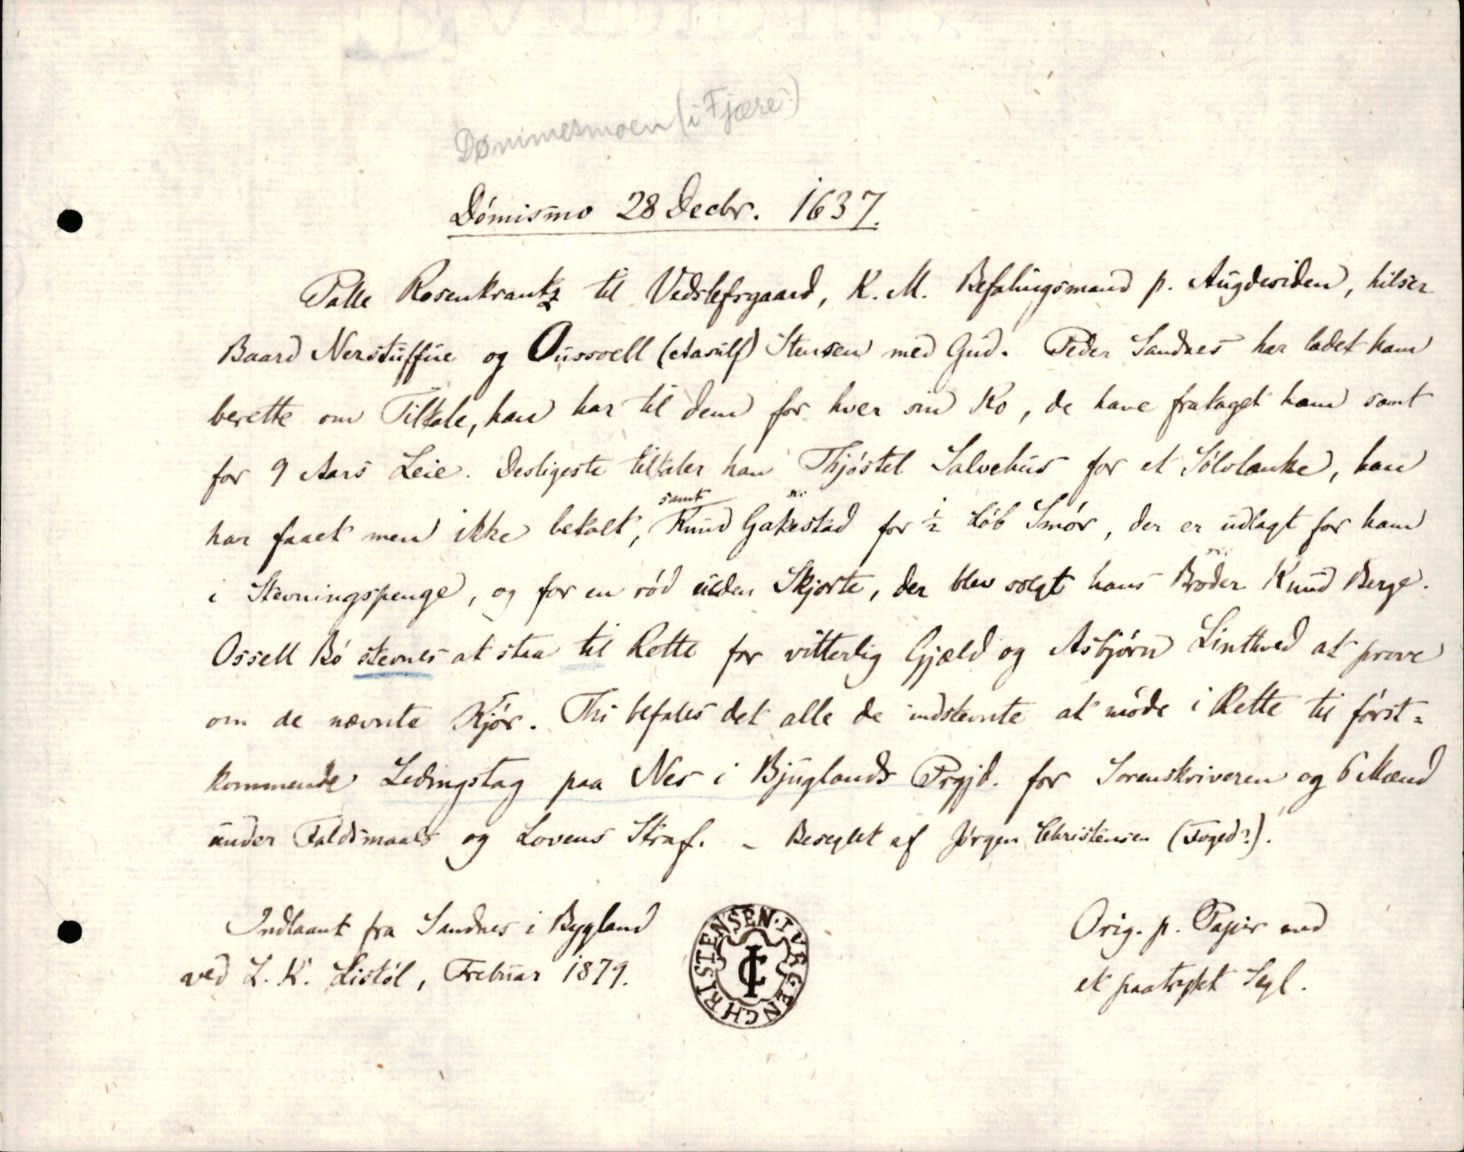 Dømmesmoen (i Fjære?)
Dómismo 28 Decbr. 1637.
Palle Rosenkrantz til Vedslefsgaard, K. M. Befalingsmand p. Augdesiden, hilser
Baard Nerstuffue og Oussvell (Aasulf) Stensen med Gud. Peder Sandnes har ladet ham
berette om Tiltale, han har til dem for hver sin Ko, de have frataget ham samt
for 9 Aars Leie. Desligeste tiltaler han Thjóstel Salvehus for et Sólvlænke, han
har faaet men ikke betalt, samt Knud Gakestad for ½ Lób Smór, der er udlagt for ham
i Stevningspenge, og for en ród ulden Skjorte, der blev solgt hans Broder Knud Berge.
Ossell Bó stevnes at staa til Rette for vitterlig Gjæld og Asbjórn Linthved at prove
om de nævnte Kjór. Thi befales det alle de indstevnte at móde i Rette til fórst=
kommende Ledingstag paa Nes i Bjuglands Prgjd. for Sorenskriveren og 6 Mænd
under Faldsmaals og Lovens Straf. – Beseglet af Jórgen Christensen (Foged?).
Indlaant fra Sandnes i Bygland
ved L. K. Listól, Februar 1879.
CHRISTENSEN · IVRGEN
IC
Orig. p. Papir med
et paatrykt Segl.